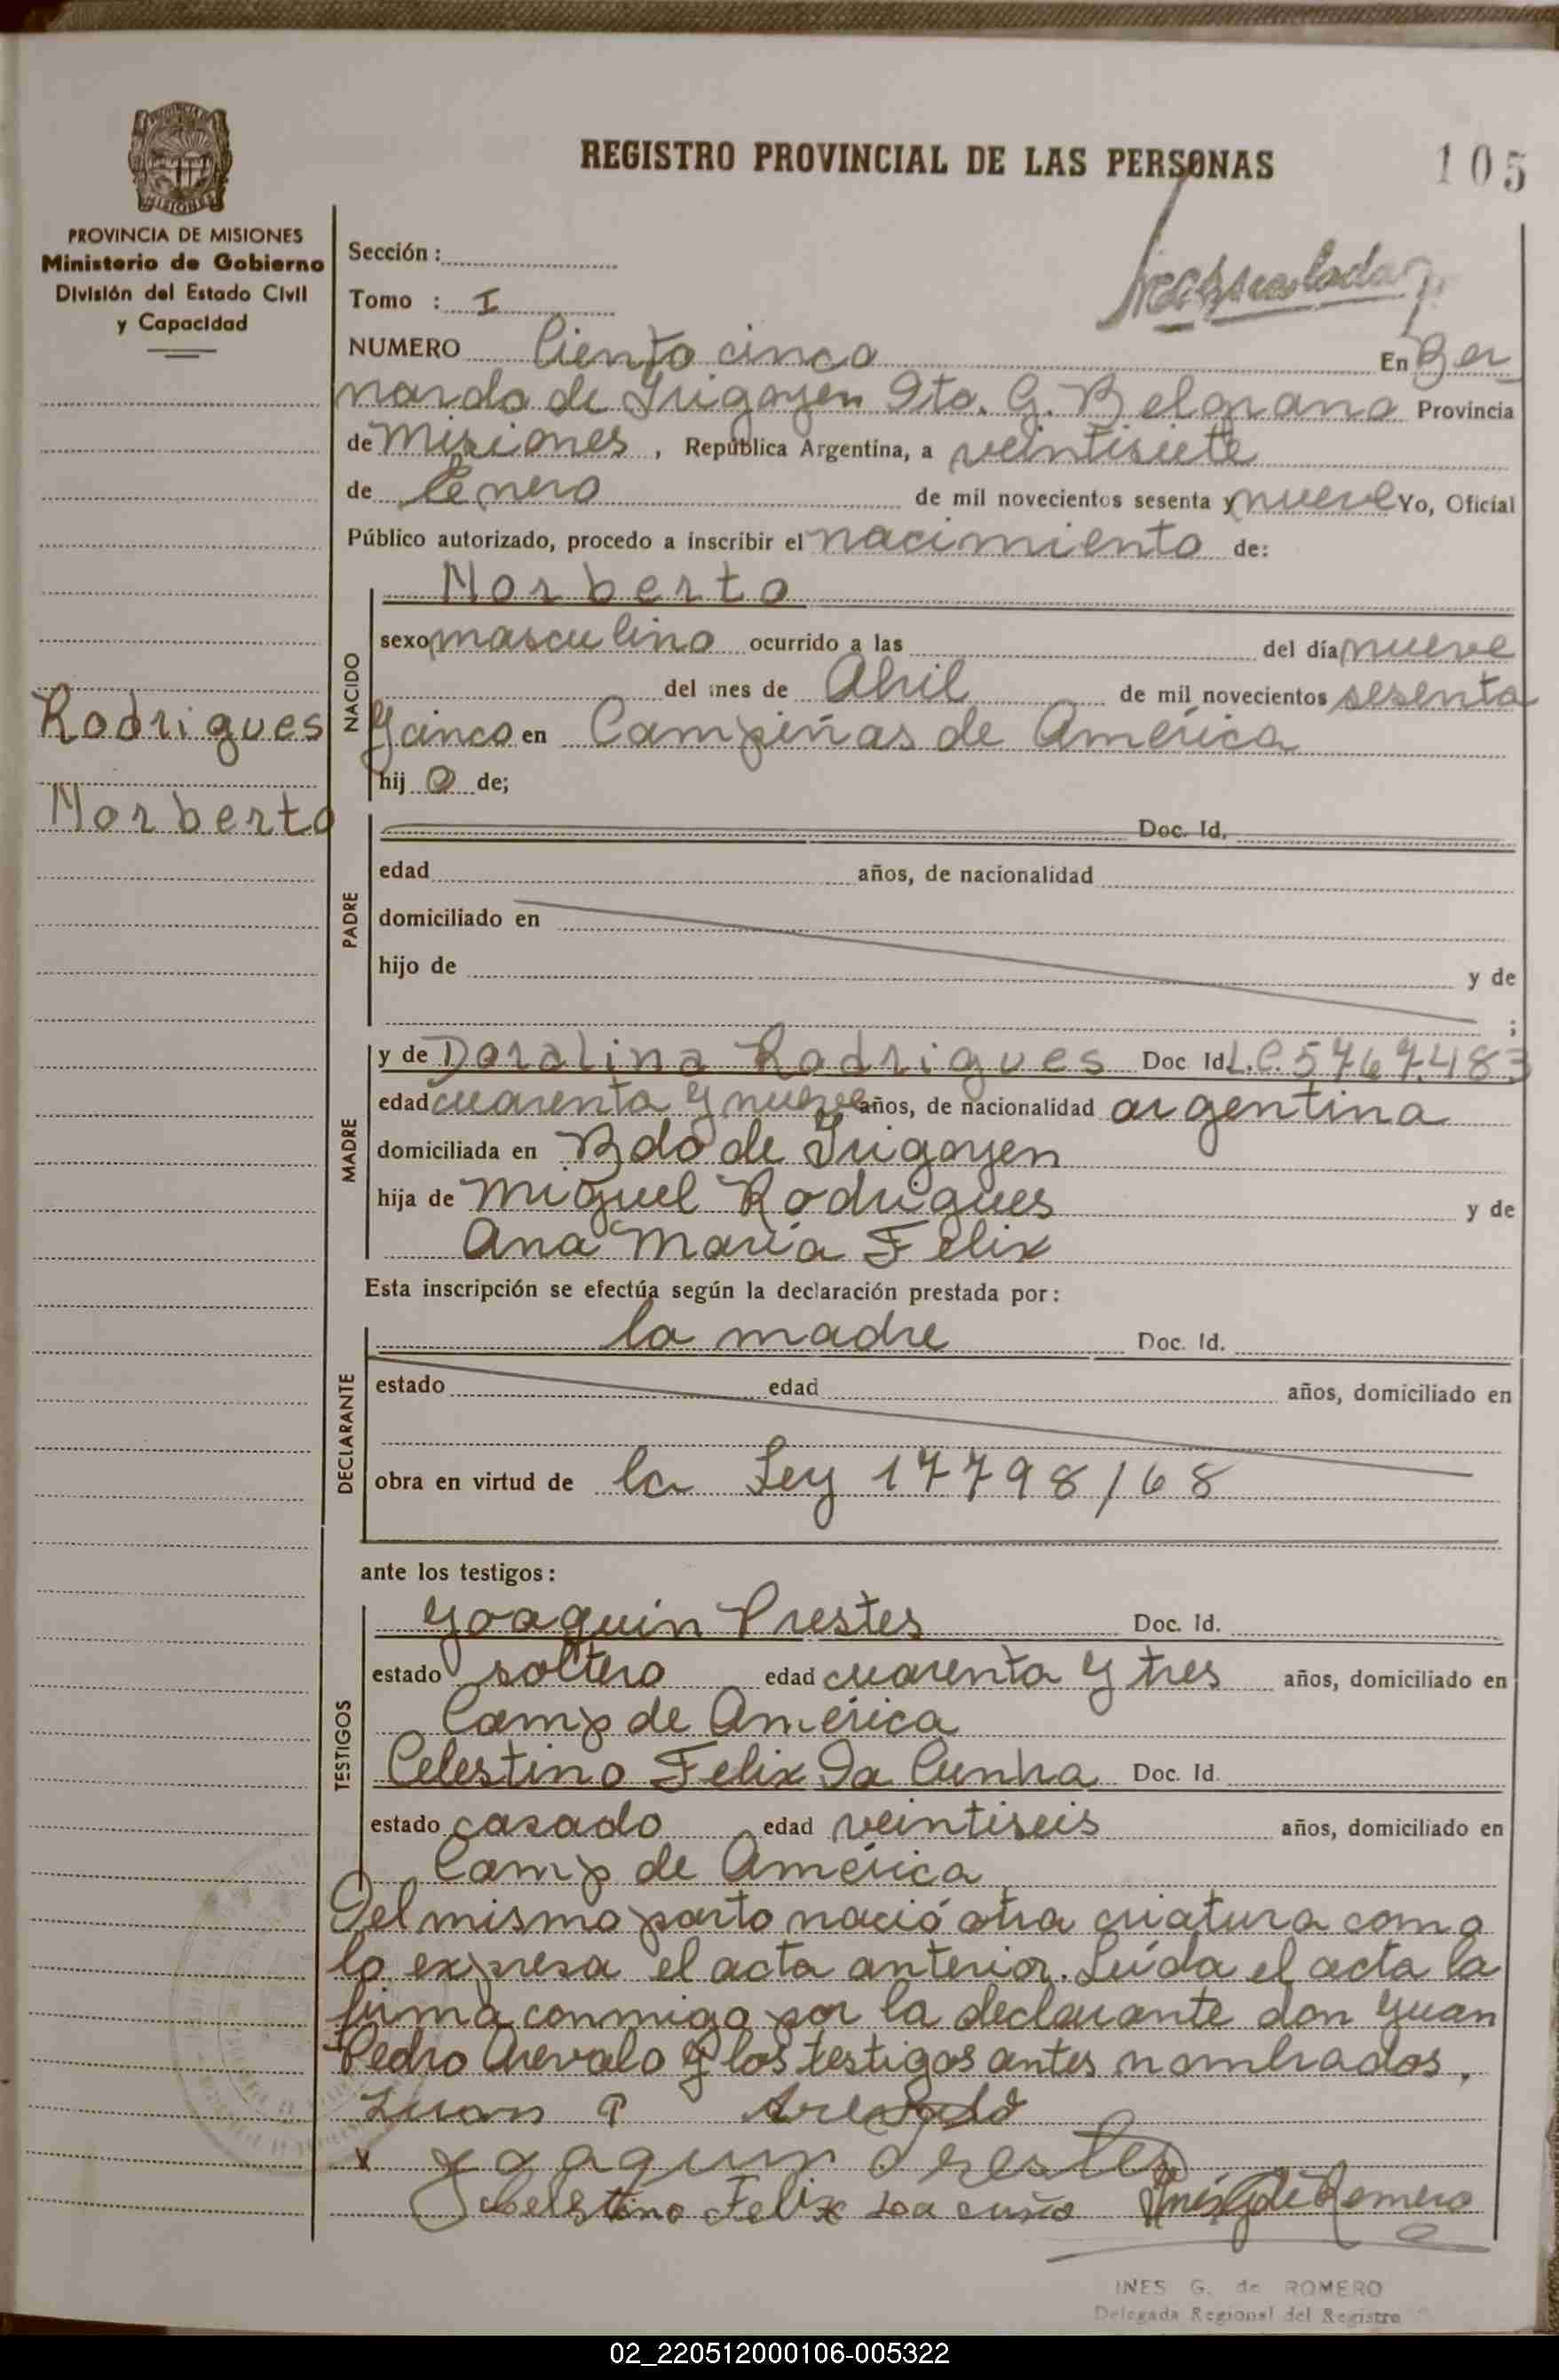 REGISTRO PROVINCIAL DE LAS PERSONAS
105
PROVINCIA DE MISIONES
Ministerio de Gobierno
División del Estado Civil
y Capacidad
Sección :
Tomo : I
NUMERO Ciento cinco En Ber
nardo de Irigoyen Dto. G. Belgrano Provincia
de Misiones , República Argentina, a veintisiete
de Enero de mil novecientos sesenta y nueve Yo, Oficial
Público autorizado, procedo a inscribir el nacimiento de:
Norberto
NACIDO
sexo masculino ocurrido a las del día nueve
del mes de Abril de mil novecientos sesenta
y cinco en Campiñas de América
hij o de;
Rodrigues
Norberto
PADRE
Doc. Id.
edad años, de nacionalidad
domiciliado en
hijo de y de
;
MADRE
y de Doralina Rodrigues Doc Id L.C. 5767.483
edad cuarenta y nueve años, de nacionalidad argentina
domiciliada en Bdo de Irigoyen
hija de Miguel Rodrigues y de
Ana María Felix
Esta inscripción se efectúa según la declaración prestada por :
DECLARANTE
la madre Doc. Id.
estado edad años, domiciliado en
obra en virtud de la Ley 17798/68
ante los testigos :
TESTIGOS
Joaquin Prestes Doc. Id.
estado soltero edad cuarenta y tres años, domiciliado en
Camp de América
Celestino Felix Da Cunha Doc. Id.
estado casado edad veintiseis años, domiciliado en
Camp de América
Del mismo parto nació otra criatura como
lo expresa el acta anterior. Leída el acta la
firma conmigo por la declarante don Juan
Pedro Arevalo y los testigos antes nombrados.
Juan P Arevalo
x Joaquin Prestes
Selestino Felix Da cuña Inés G de Romero
INES G. de ROMERO
Delegada Regional del Registro
02_220512000106-005322